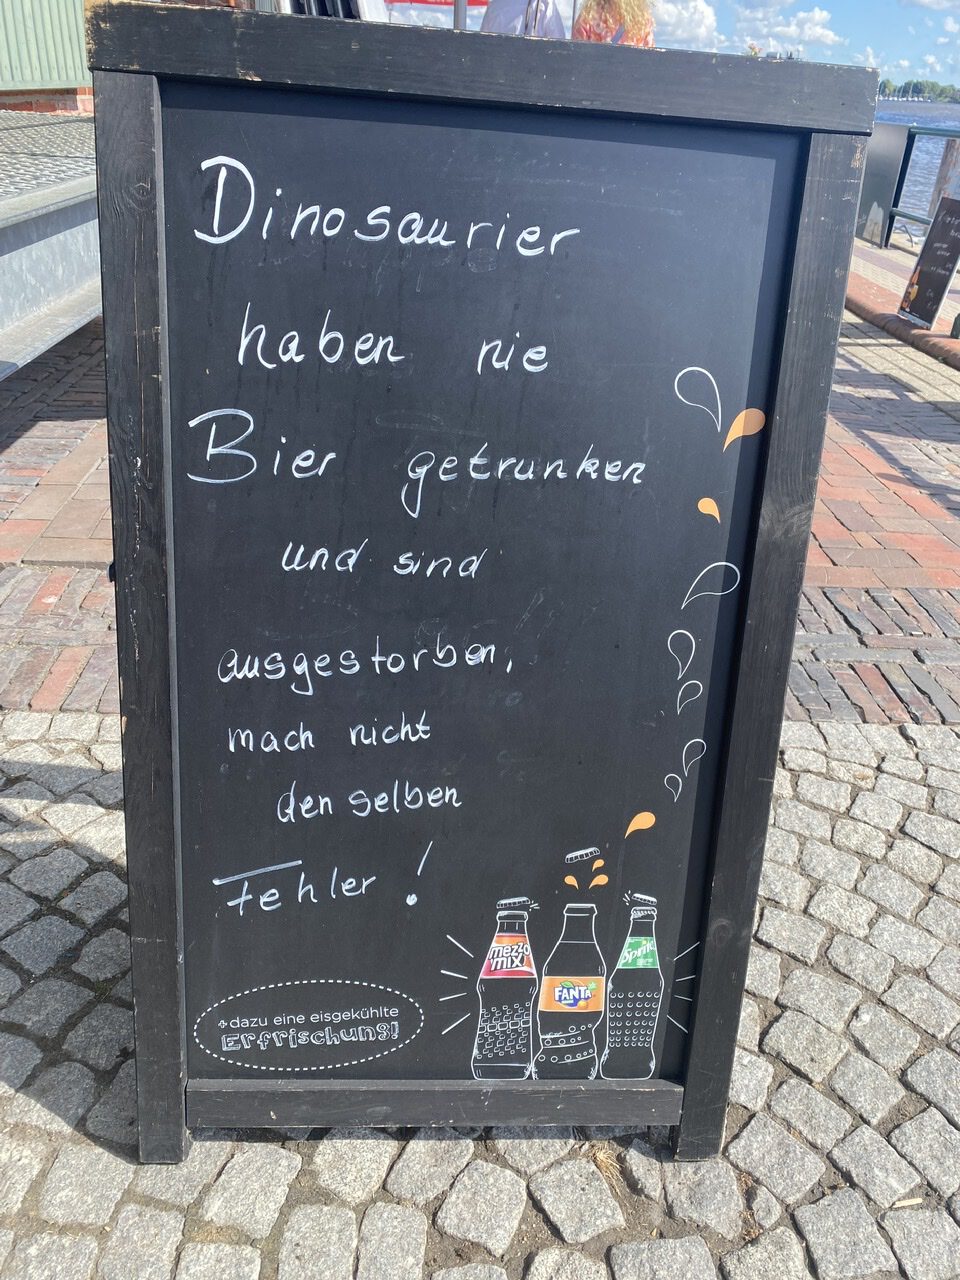 Dinosaurier
haben nie
Bier getrunken
und sind
ausgestorben,
mach nicht
den selben
Fehler !
+dazu eine eisgekühlte
Erfrischung!
mezzo
mix
FANTA
Sprite